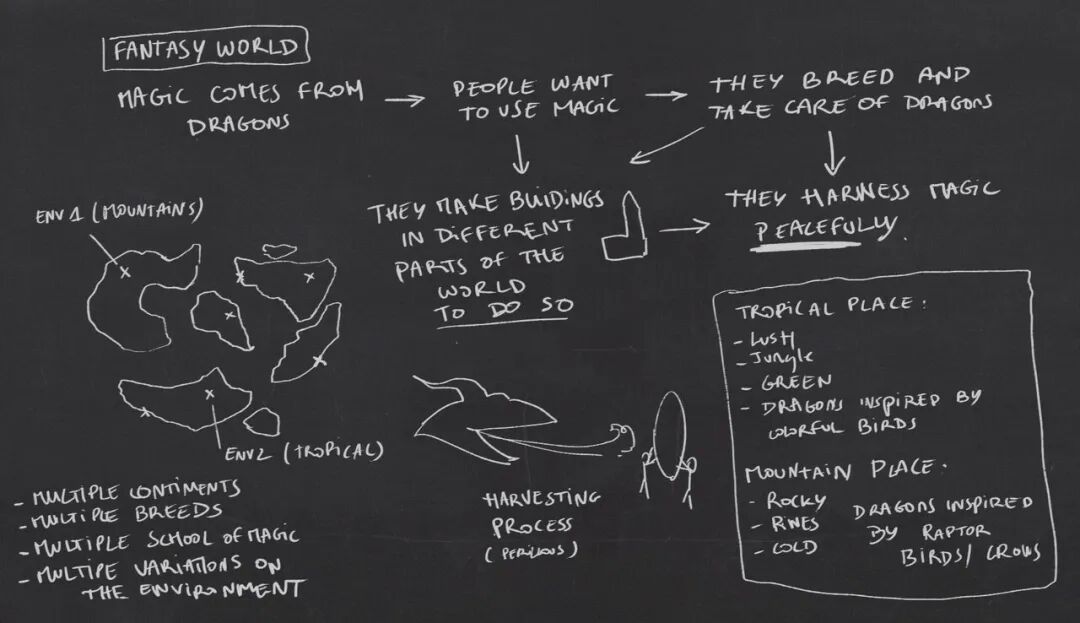 FANTASY WORLD
MAGIC COMES FROM
DRAGONS
PEOPLE WANT
TO USE MAGIC
THEY BREED AND
TAKE CARE OF DRAGONS
THEY MAKE BUIDINGS
IN DIFFERENT
PARTS OF THE
WORLD
TO DO SO
THEY HARNESS MAGIC
PEACEFULLY.
ENV 1 (MOUNTAINS)
ENV2 (TROPICAL)
- MULTIPLE CONTIMENTS
- MULTIPLE BREEDS
- MULTIPLE SCHOOL OF MAGIC
- MULTIPE VARIATIONS ON
THE ENVIRONMENT
HARVESTING
PROCESS
(PERILOUS)
TROPICAL PLACE:
- LUSH
- JUNGLE
- GREEN
- DRAGONS INSPIRED BY
COLORFUL BIRDS
MOUNTAIN PLACE.
- ROCKY
- PINES
- COLD
DRAGONS INSPIRED
BY RAPTOR
BIRDS/ CROWS